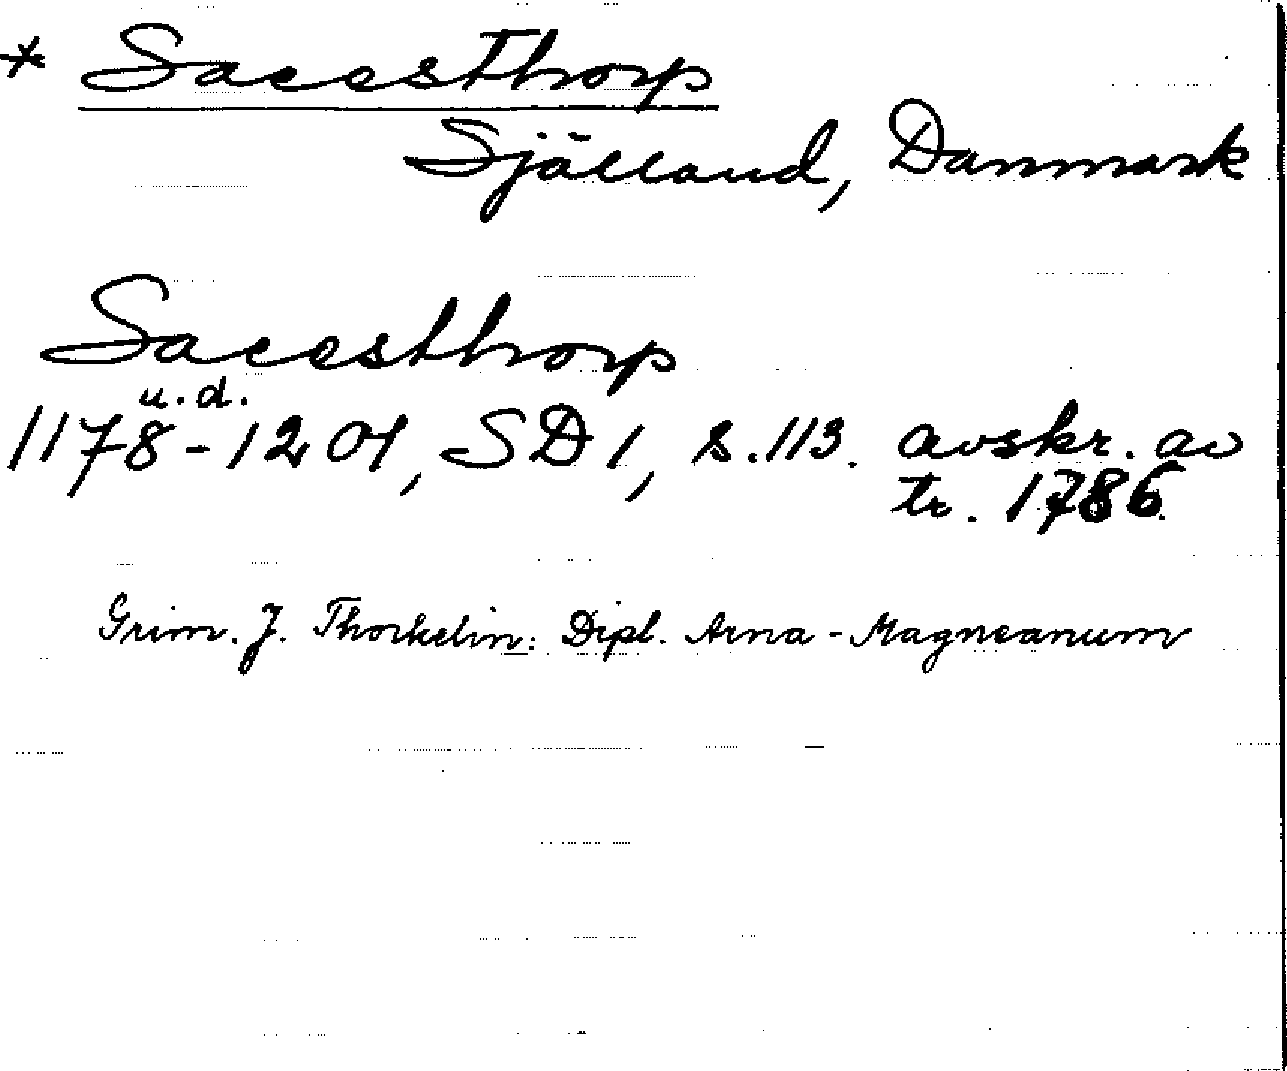 * Saccsthorp
Själland, Danmark
Saccsthorp
u.d.
1178-1201, SD 1, s. 113. avskr. av
tr. 1786.
Grim. J. Thorkelin: Dipl. Arna-Magneanum